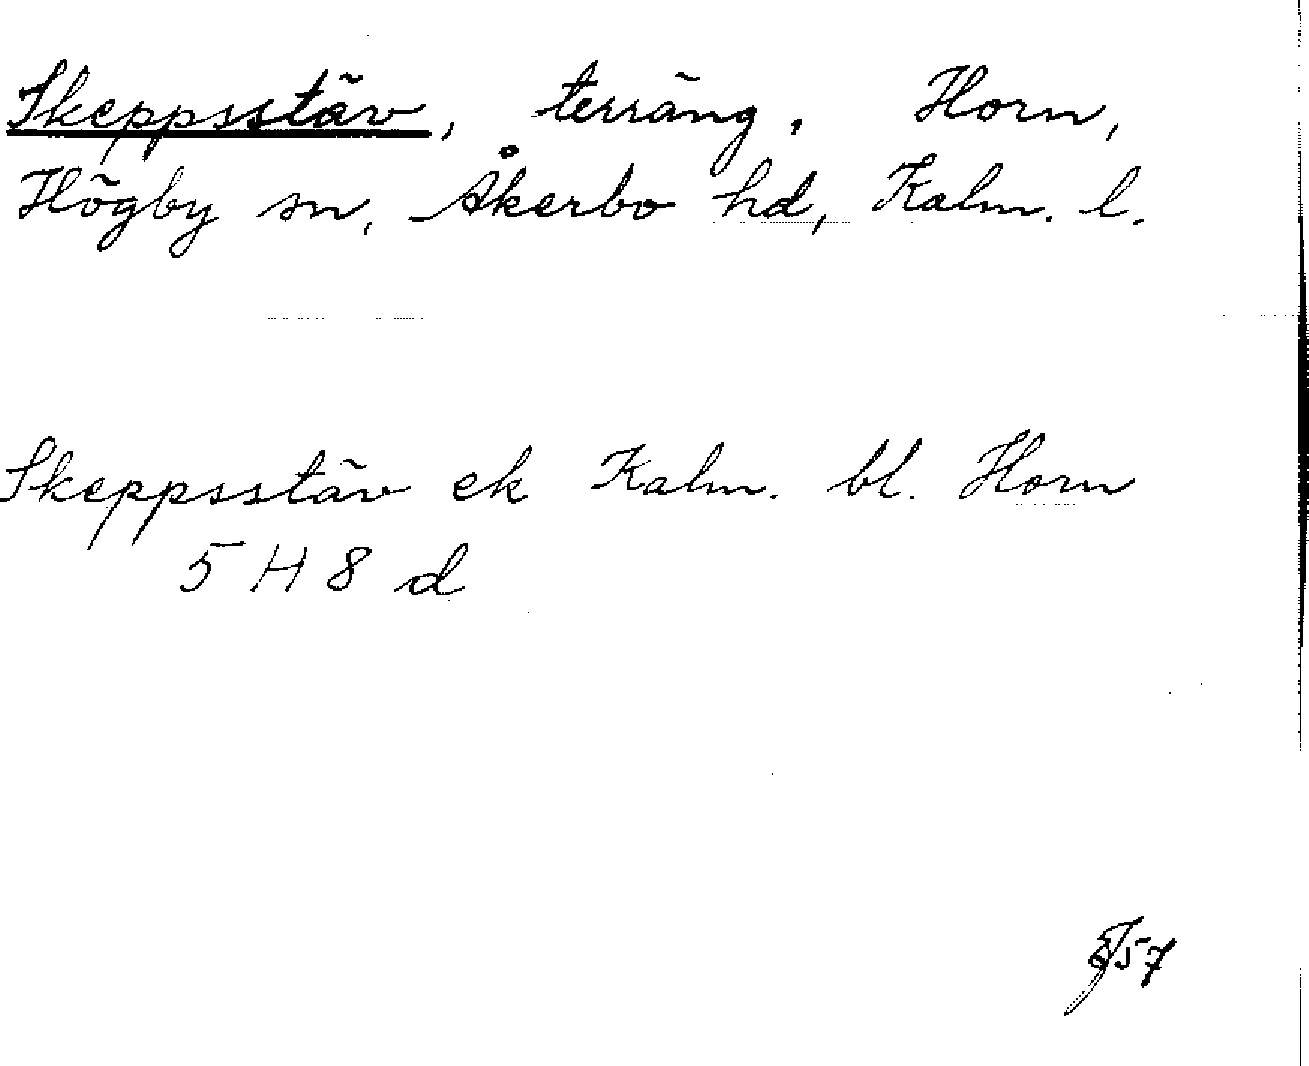 Skeppsstäv, terräng, Horn,
Högby sn, Åkerbo hd, Kalm. l.
Skeppsstäv ek Kalm. bl. Horn
5 H 8 d
57